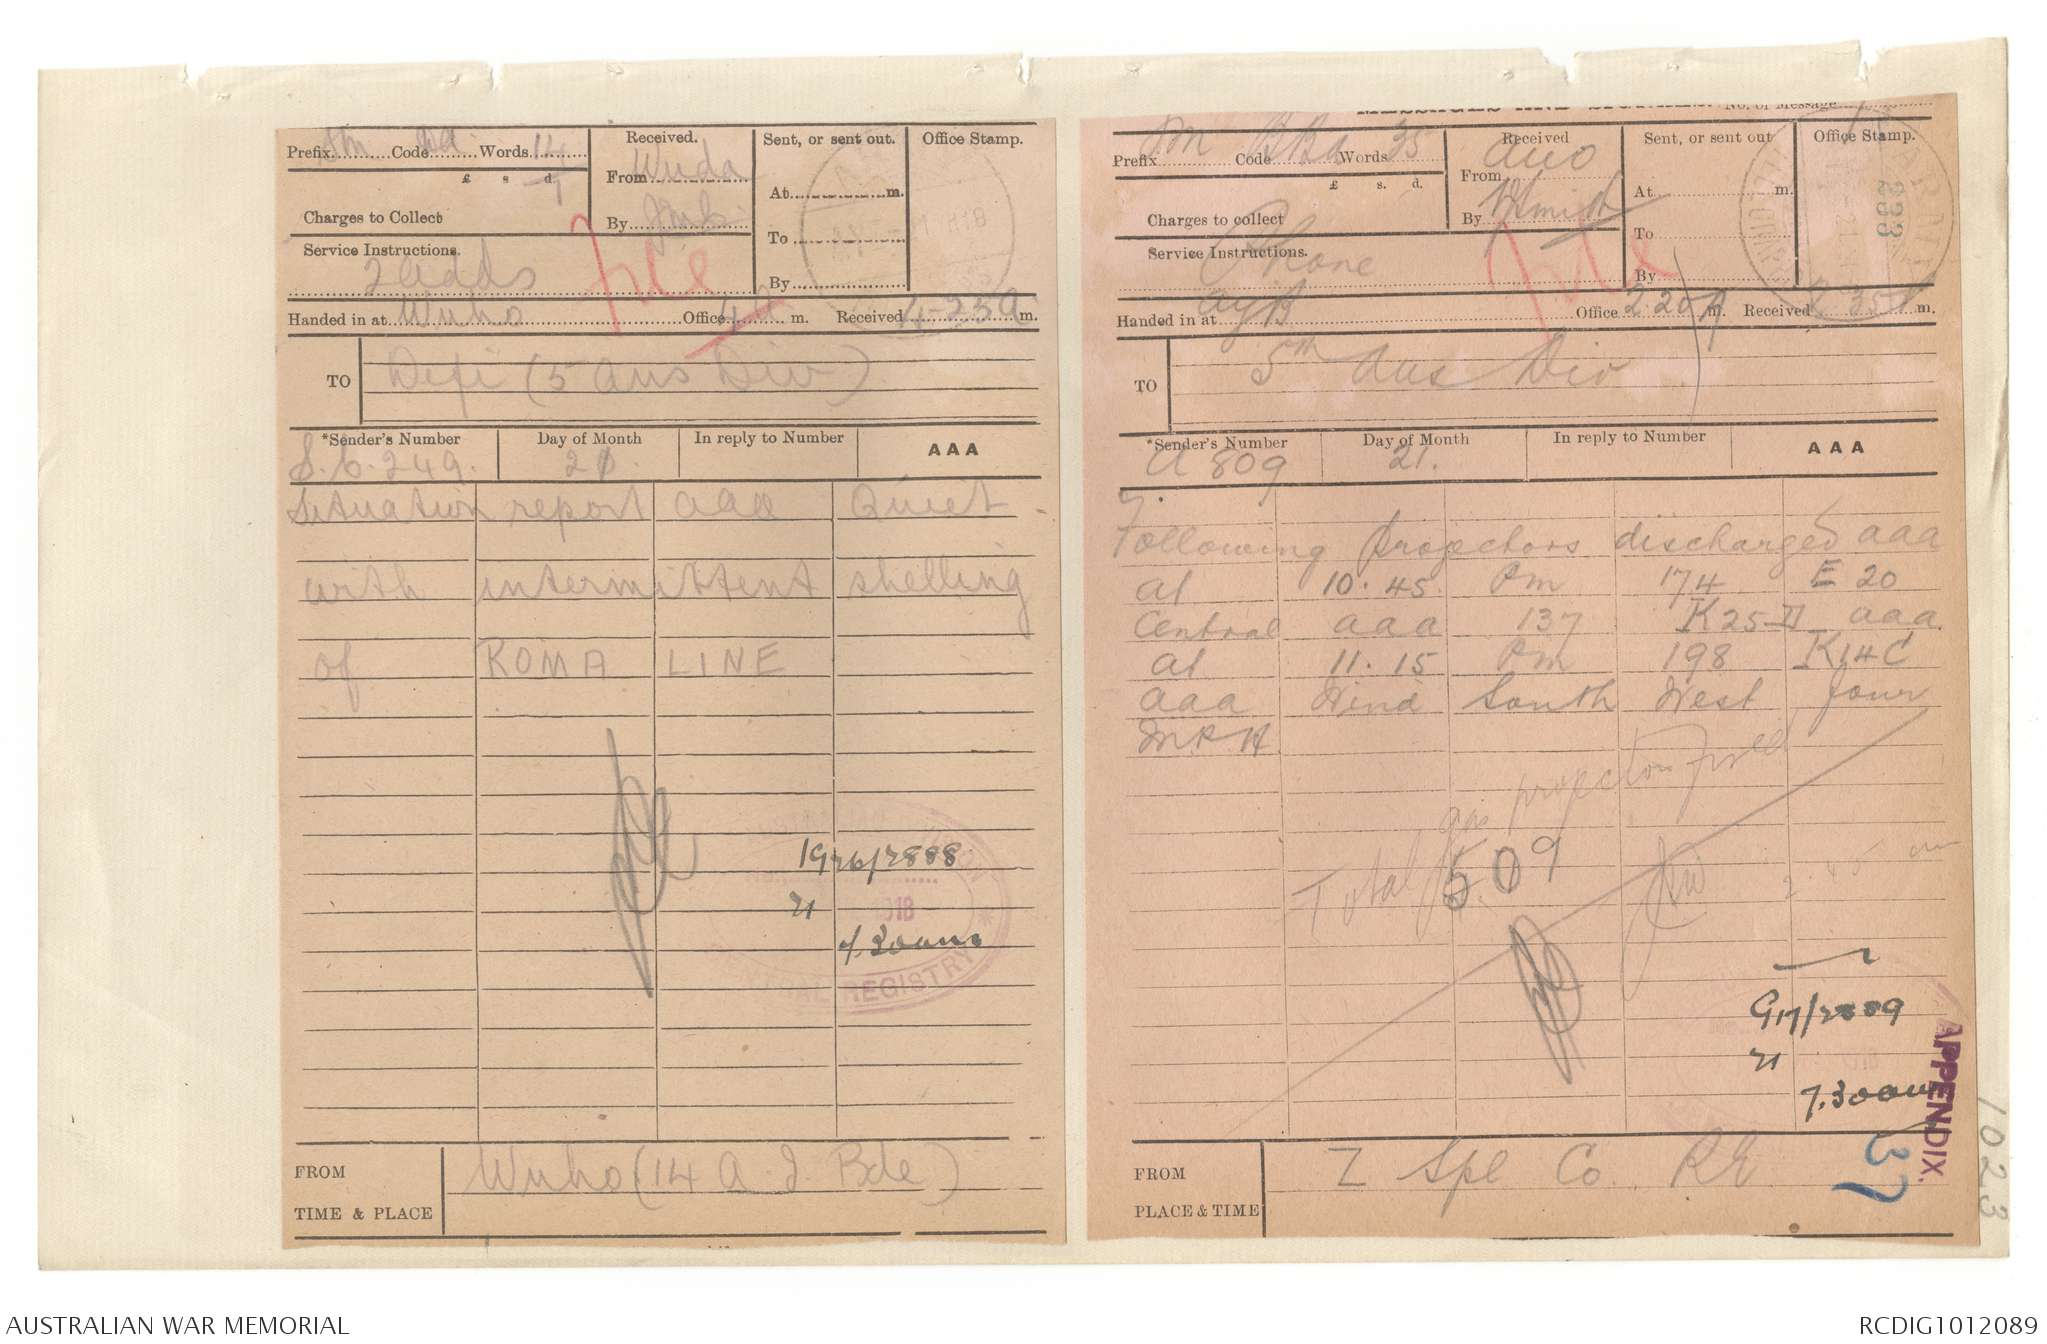 Prefix Sm Code Words 14
£ s d.
Charges to Collect
Received.
From Wuda
By
Sent, or sent out.
At m.
To
By
Office Stamp.
Service Instructions.
2 adds
free
Handed in at Wuho Office 4 A m. Received 4-23 A m.
TO Defi (5 Aus Div)
*Sender's Number Day of Month In reply to Number AAA
S.C.249. 21.
Situation report aaa Quiet
with intermittent shelling
of ROMA LINE
1926/2888
21
7.30am
CENTRAL REGISTRY
FROM Wuho (14 A.I. Bde)
TIME & PLACE
MESSAGES AND SIGNALS. No. of Message
Prefix Sm Code Words 35
£ s. d.
Charges to collect
Received
From
By
Sent, or sent out
At m.
To
By
Office Stamp.
233
Service Instructions.
Phone
free
Handed in at Office 2.20 A m. Received 2.35 A m.
TO 5th Aus Div
*Sender's Number Day of Month In reply to Number AAA
A 809 21.
Following Projectors discharged aaa
at 10.45 Pm 174 E 20
Central aaa 137 K25 aaa
at 11.15 Pm 198 K14C
aaa Wind South West four
M.P.H
gas projectors fired
Total 509
2.45 am
G17/2889
21
7.30am
APPENDIX.
37
1023
FROM Z Spl Co. RE
PLACE & TIME
AUSTRALIAN WAR MEMORIAL
RCDIG1012089